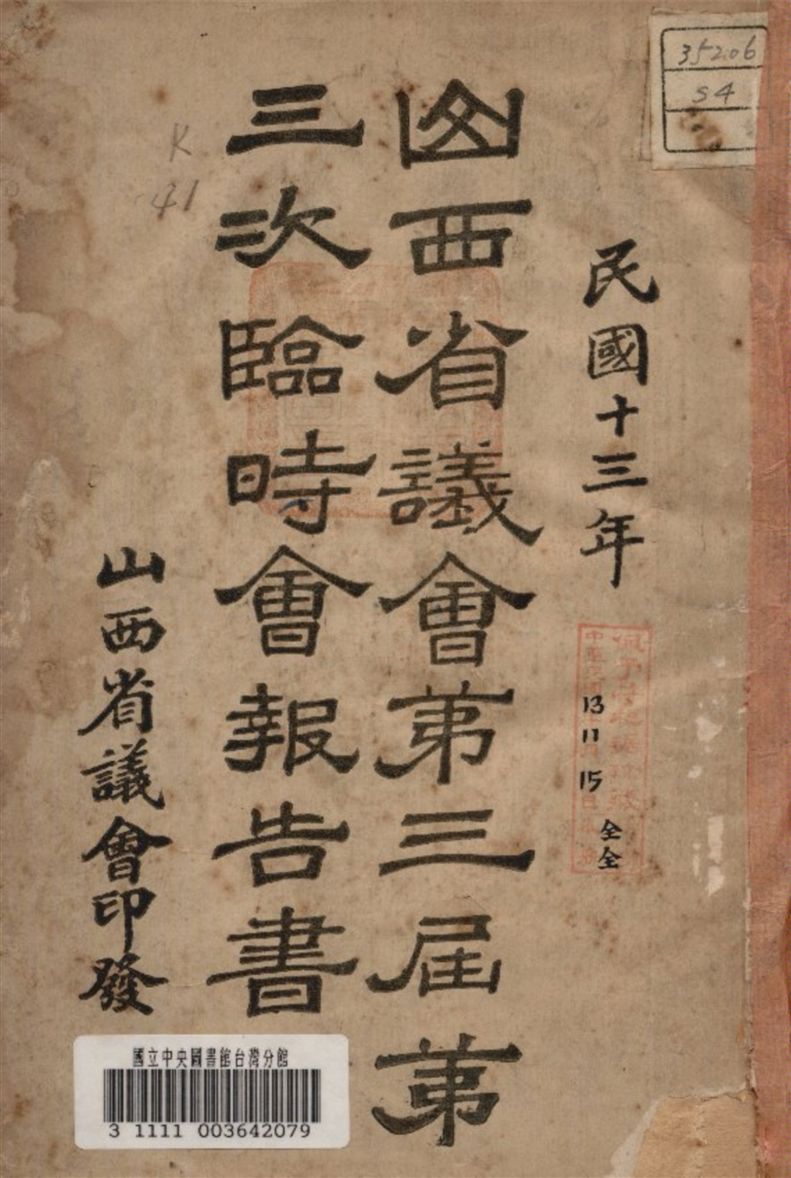 35206
S4
民國十三年
13
11
15
全全
山西省議會第三屆第
三次臨時會報告書
K
41
山西省議會印發
國立中央圖書館台灣分館
3 1111 003642079